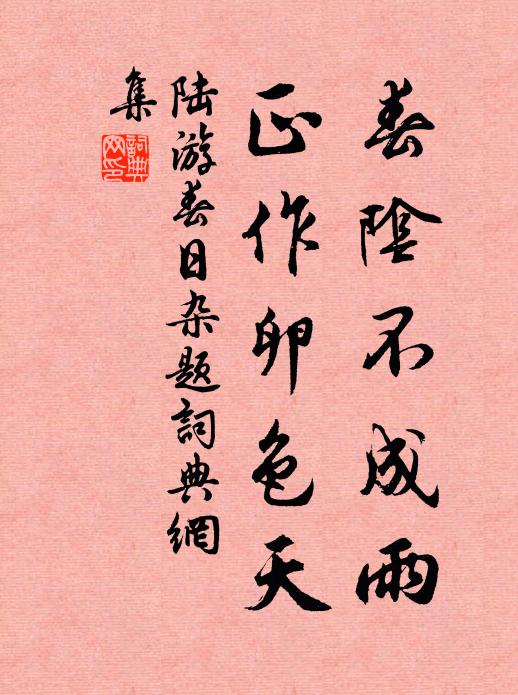 春陰不成雨
正作卵色天
陆游春日杂题詞典網
集
詞典
网印